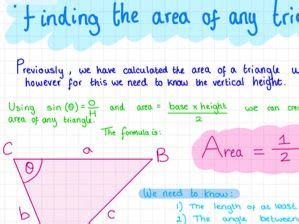 Finding the area of any
Previously, we have calculated the area of a triangle
however for this we need to know the vertical height.
Using sin (θ) = O/H and area = base x height / 2 we can
area of any triangle.
The formula is:
C a B
θ
b c
Area = 1/2
We need to know:
1) The length of at least
2) The angle between